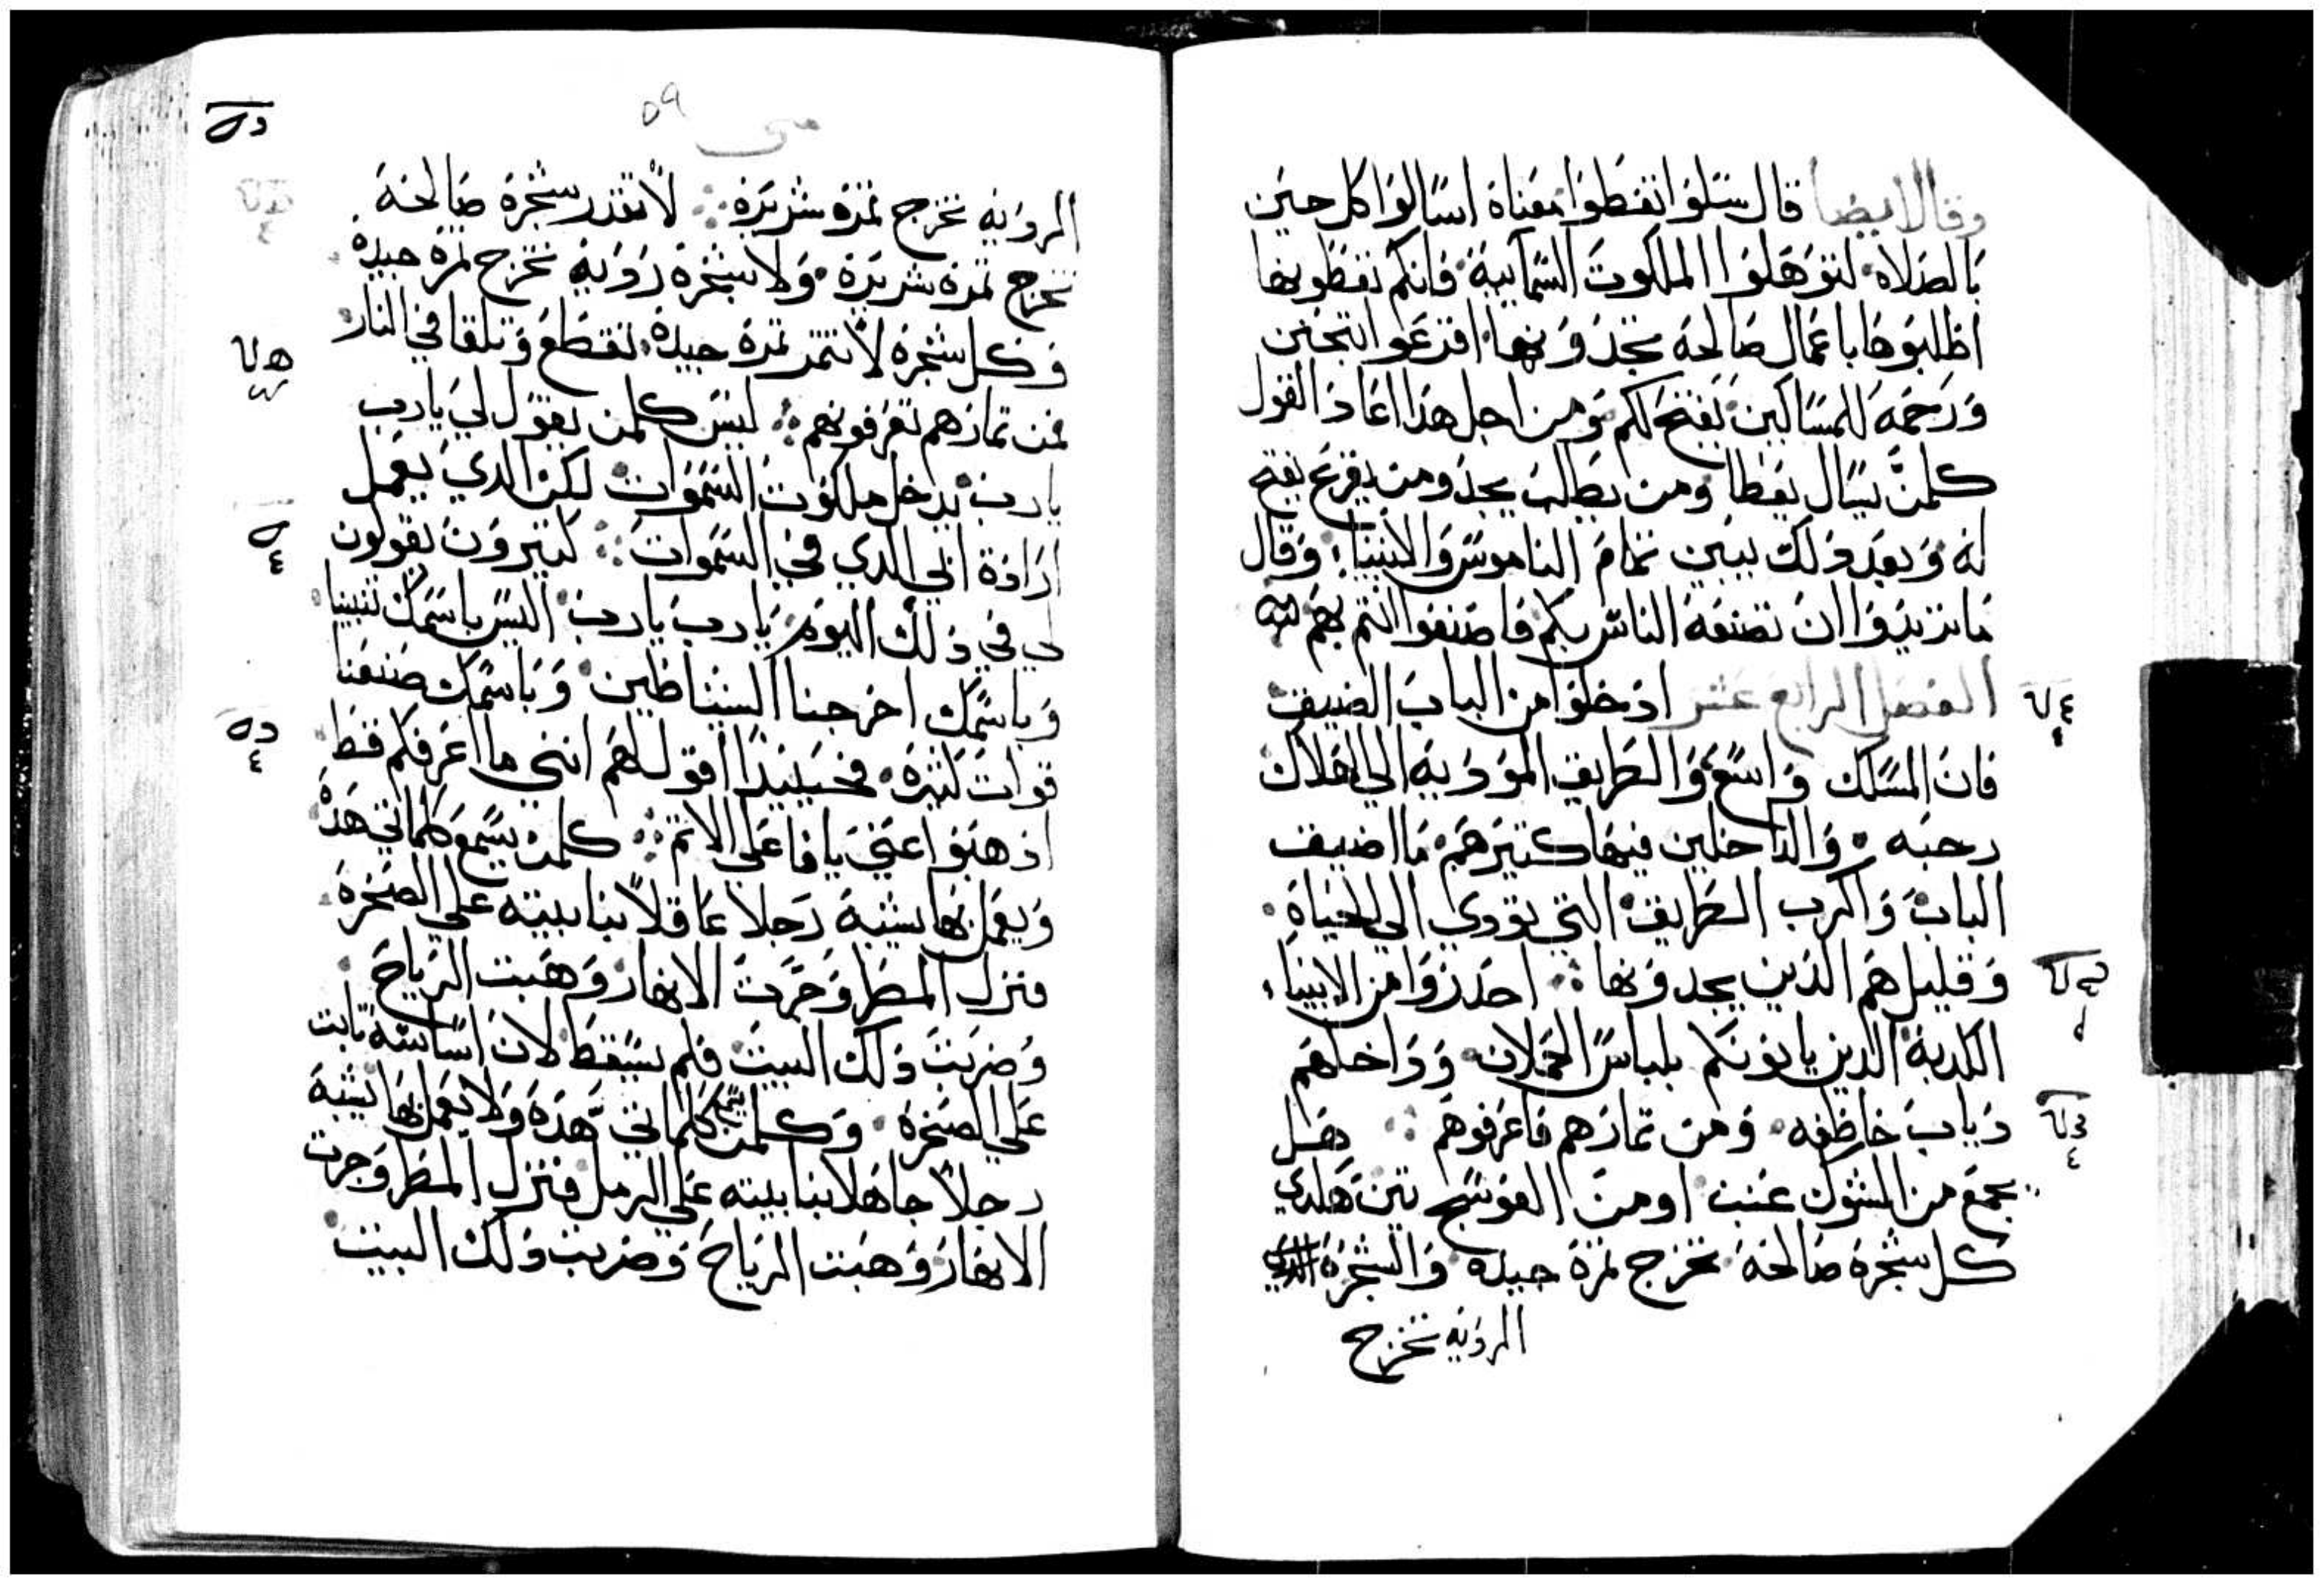 وقال ايضا قال سَلوا تعَطوا مَعَناة اسَالوا كل حين
بَالصَلاه لتوَهَلوا الملكوت السَمآييه فانكم تعَطونها
اطلبَوهَا باعَمال صَالحه تجدَونها اقرعَوا
وَرَحَمه للمسَاكين يَفتح لكم وَمن اجل هَدا اعَادَ القول
كلمنَ يسَال يعَطا وَمن يطلب يجد ومن يقرع يفتح
له وَبعَد دَلك يبين تمامَ الناموسَ وَالانبيا وَقال
مَا تريدَوا ان تصنعَه الناسَ بكم فاصنعَوا انتم بهَم
الفصَل الرابع عَشر ادَخلوَا من الباب الضيق
فان المسَلك وَاسَع وَالطريق المَودَيه الي الهَلاك
رحبَه وَالداخلين فيهَا كتيرَهم مَا اضيق
البابَ وَاكرب الطريق التي تودي الي الحياه
وَقليل هَم الدَين يجدَونها احَدرَوا من الانبياء
الكدبة الدين ياتونكم بلباسَ الحَملان وَدَاخلهَم
دَياب خاطفه وَمن تمارَهم فاعَرفوهَم هَل
يجمَع من الشوك عَنب او من العَوسَج تين هَكدي
كل شجَره صَالحَه تخرج تمرَة جيده وَالشجَرة
الردَيه تخرج
٥٩
متى
الردَيه تخرج تمَره شريرَة لا تقدر شجَرة صَالحَه
تخرج تمَرة شريرَة وَلا شجَرة رَدَيه تخرج تمرة جيدَة
وَكل شجَرة لا تتمر تمرَة جيدَة تقطع وَتلقا في النار
فمن تمارَهم تعَرفونهم ليسَ كلمن يقوَل لي يَارب
يارب يدَخل ملكوَت السَمَوَات لكن الدي يعَمل
ارَادَة ابي الدي في السَموَات كتيروَن يقولون
لي في دَلك اليوَم يَارب يَارب اليسَ باسَمَك تنبينا
وَباسَمَك اخرجنا الشيَاطين وَبَاسَمَك صَنعَنا
قوات كتيرَة فحَينيدَا اقول لهَم انني ما اعَرفكم قط
ادهَبَوا عَني يا فاعَلي الاتم كلمن يسَمَع كلماتي هَدَه
وَيعَمل بهَا يشبَه رَجلا عَاقلا بنا بيته عَلي الصَخرَة
فنزل المَطر وَجَرَت الانهَار وَهَبت الريَاح
وَضربَت دَلك البيت فلم يسَقط لان اسَاسَه تابت
عَلي الصَخرة وَكلمن يسمع كلماتي هَدَه وَلا يعَمل بهَا يشبَه
رجلا جاهَلا بنا بيته عَلي الرمل فنزل المَطر وَجرت
الانهَار وَهَبَت الريَاح وَضربت دَلك البيت